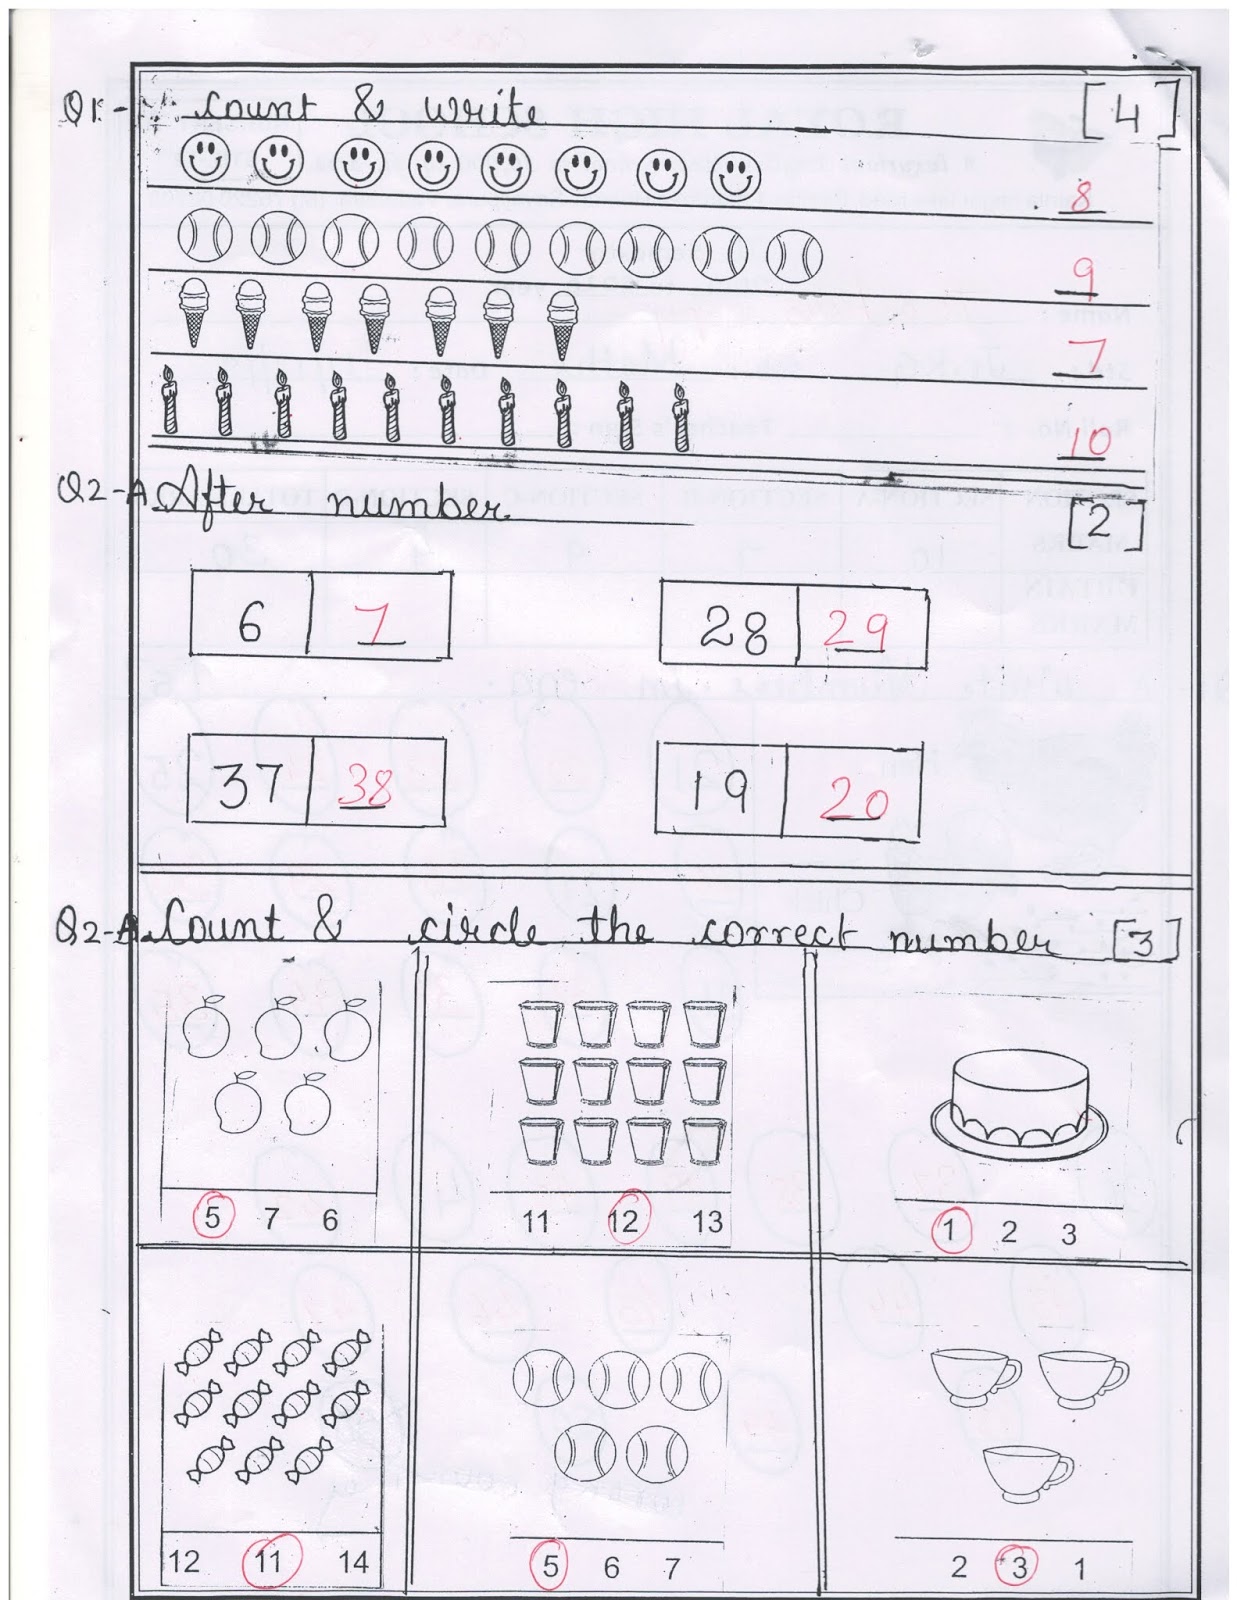 Q1.- Count & write [4]
8
9
7
10
Q2-A. After number [2]
6 7 28 29
37 38 19 20
Q2-B. Count & circle the correct number [3]
5 7 6 11 12 13 1 2 3
12 11 14 5 6 7 2 3 1